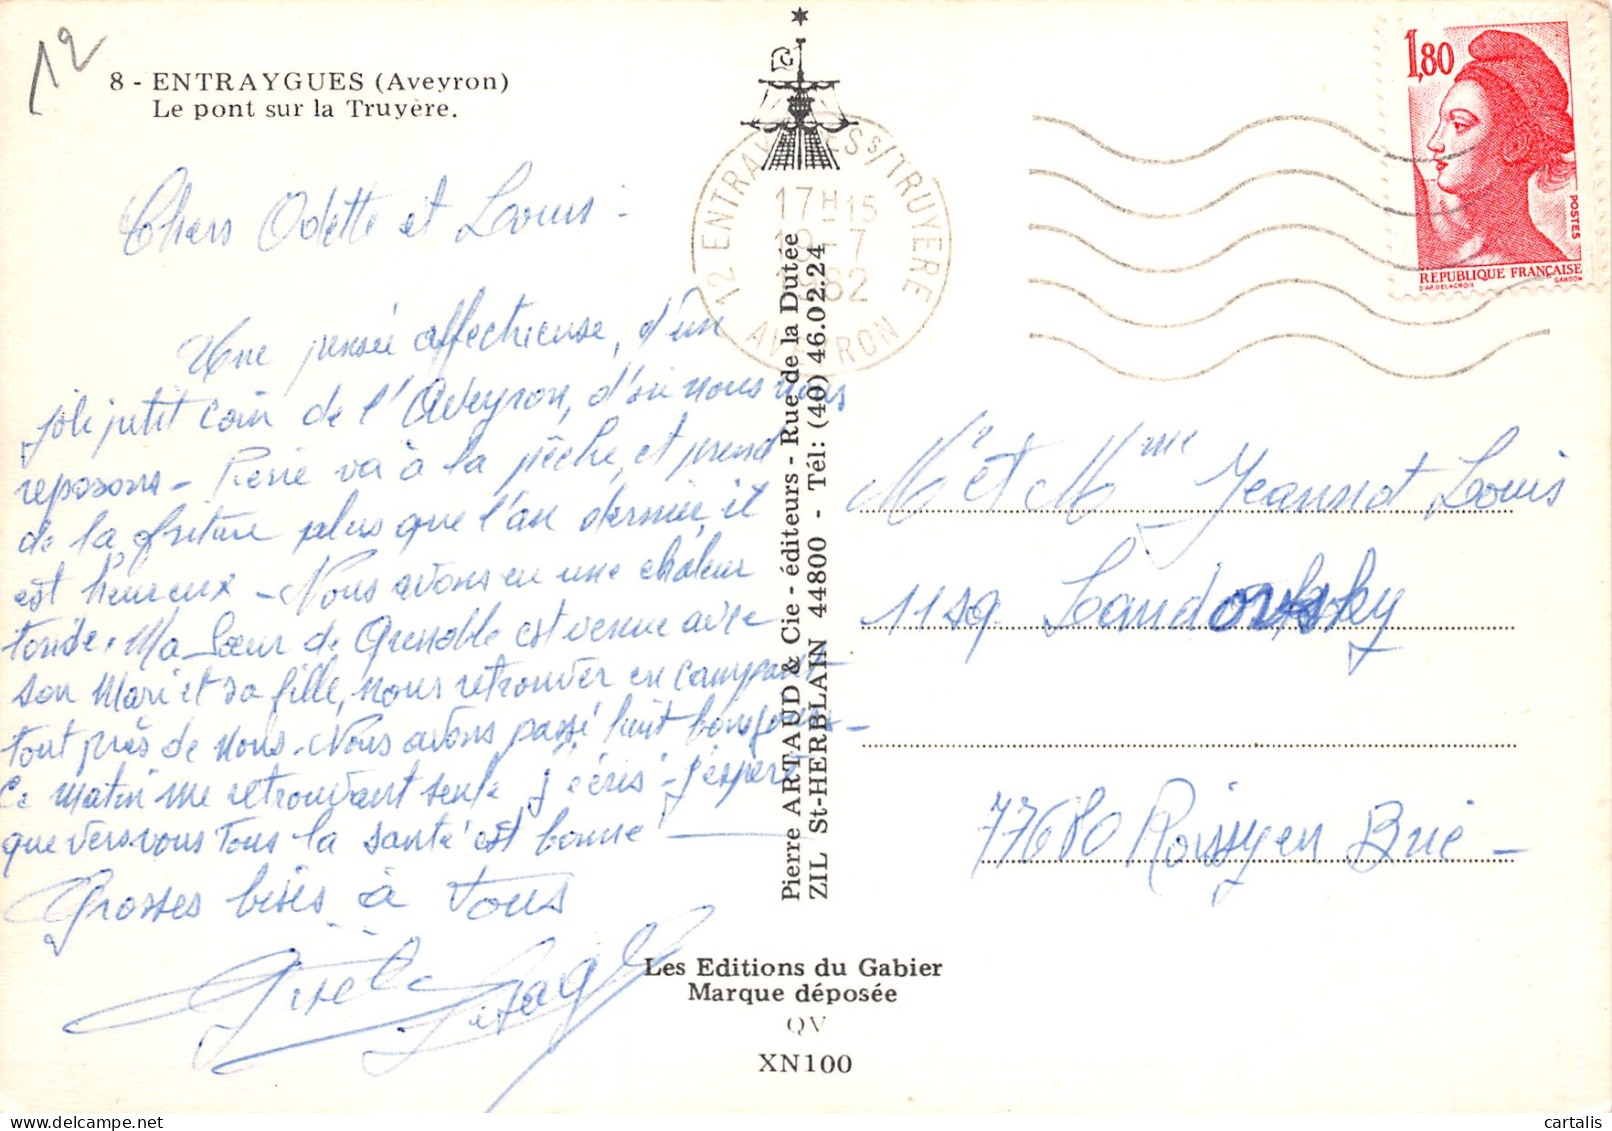 12
8 - ENTRAYGUES (Aveyron)
Le pont sur la Truyère.
Chers Odette et Louis -
Une pensée affectueuse, d'un
joli petit coin de l'Aveyron, d'où nous nous
reposons - Pierre va à la pêche, et prend
de la friture plus que l'an dernier, il
est heureux - Nous avons eu une chaleur
torride. Ma Sœur de Grenoble est venue avec
son Mari et sa fille, nous retrouver en campant
tout près de nous. Nous avons passé huit bons jours -
Ce matin me retrouvant seule j'écris - J'espère
que vers vous tous la santé est bonne
Grosses bises à Tous
Gisèle
12 ENTRAYGUES S/TRUYERE
17H15
19-7
1982
AVEYRON
Pierre ARTAUD & Cie - éditeurs - Rue de la Dutée
ZIL St-HERBLAIN 44800 - Tél: (40) 46.02.24
Les Editions du Gabier
Marque déposée
QV
XN100
1,80
POSTES
REPUBLIQUE FRANÇAISE
D'AP. DELACROIX GANDON
Mr et Mme Jeannot Louis
11 sq. Landowsky
77680 Roissy en Brie -
cartalis